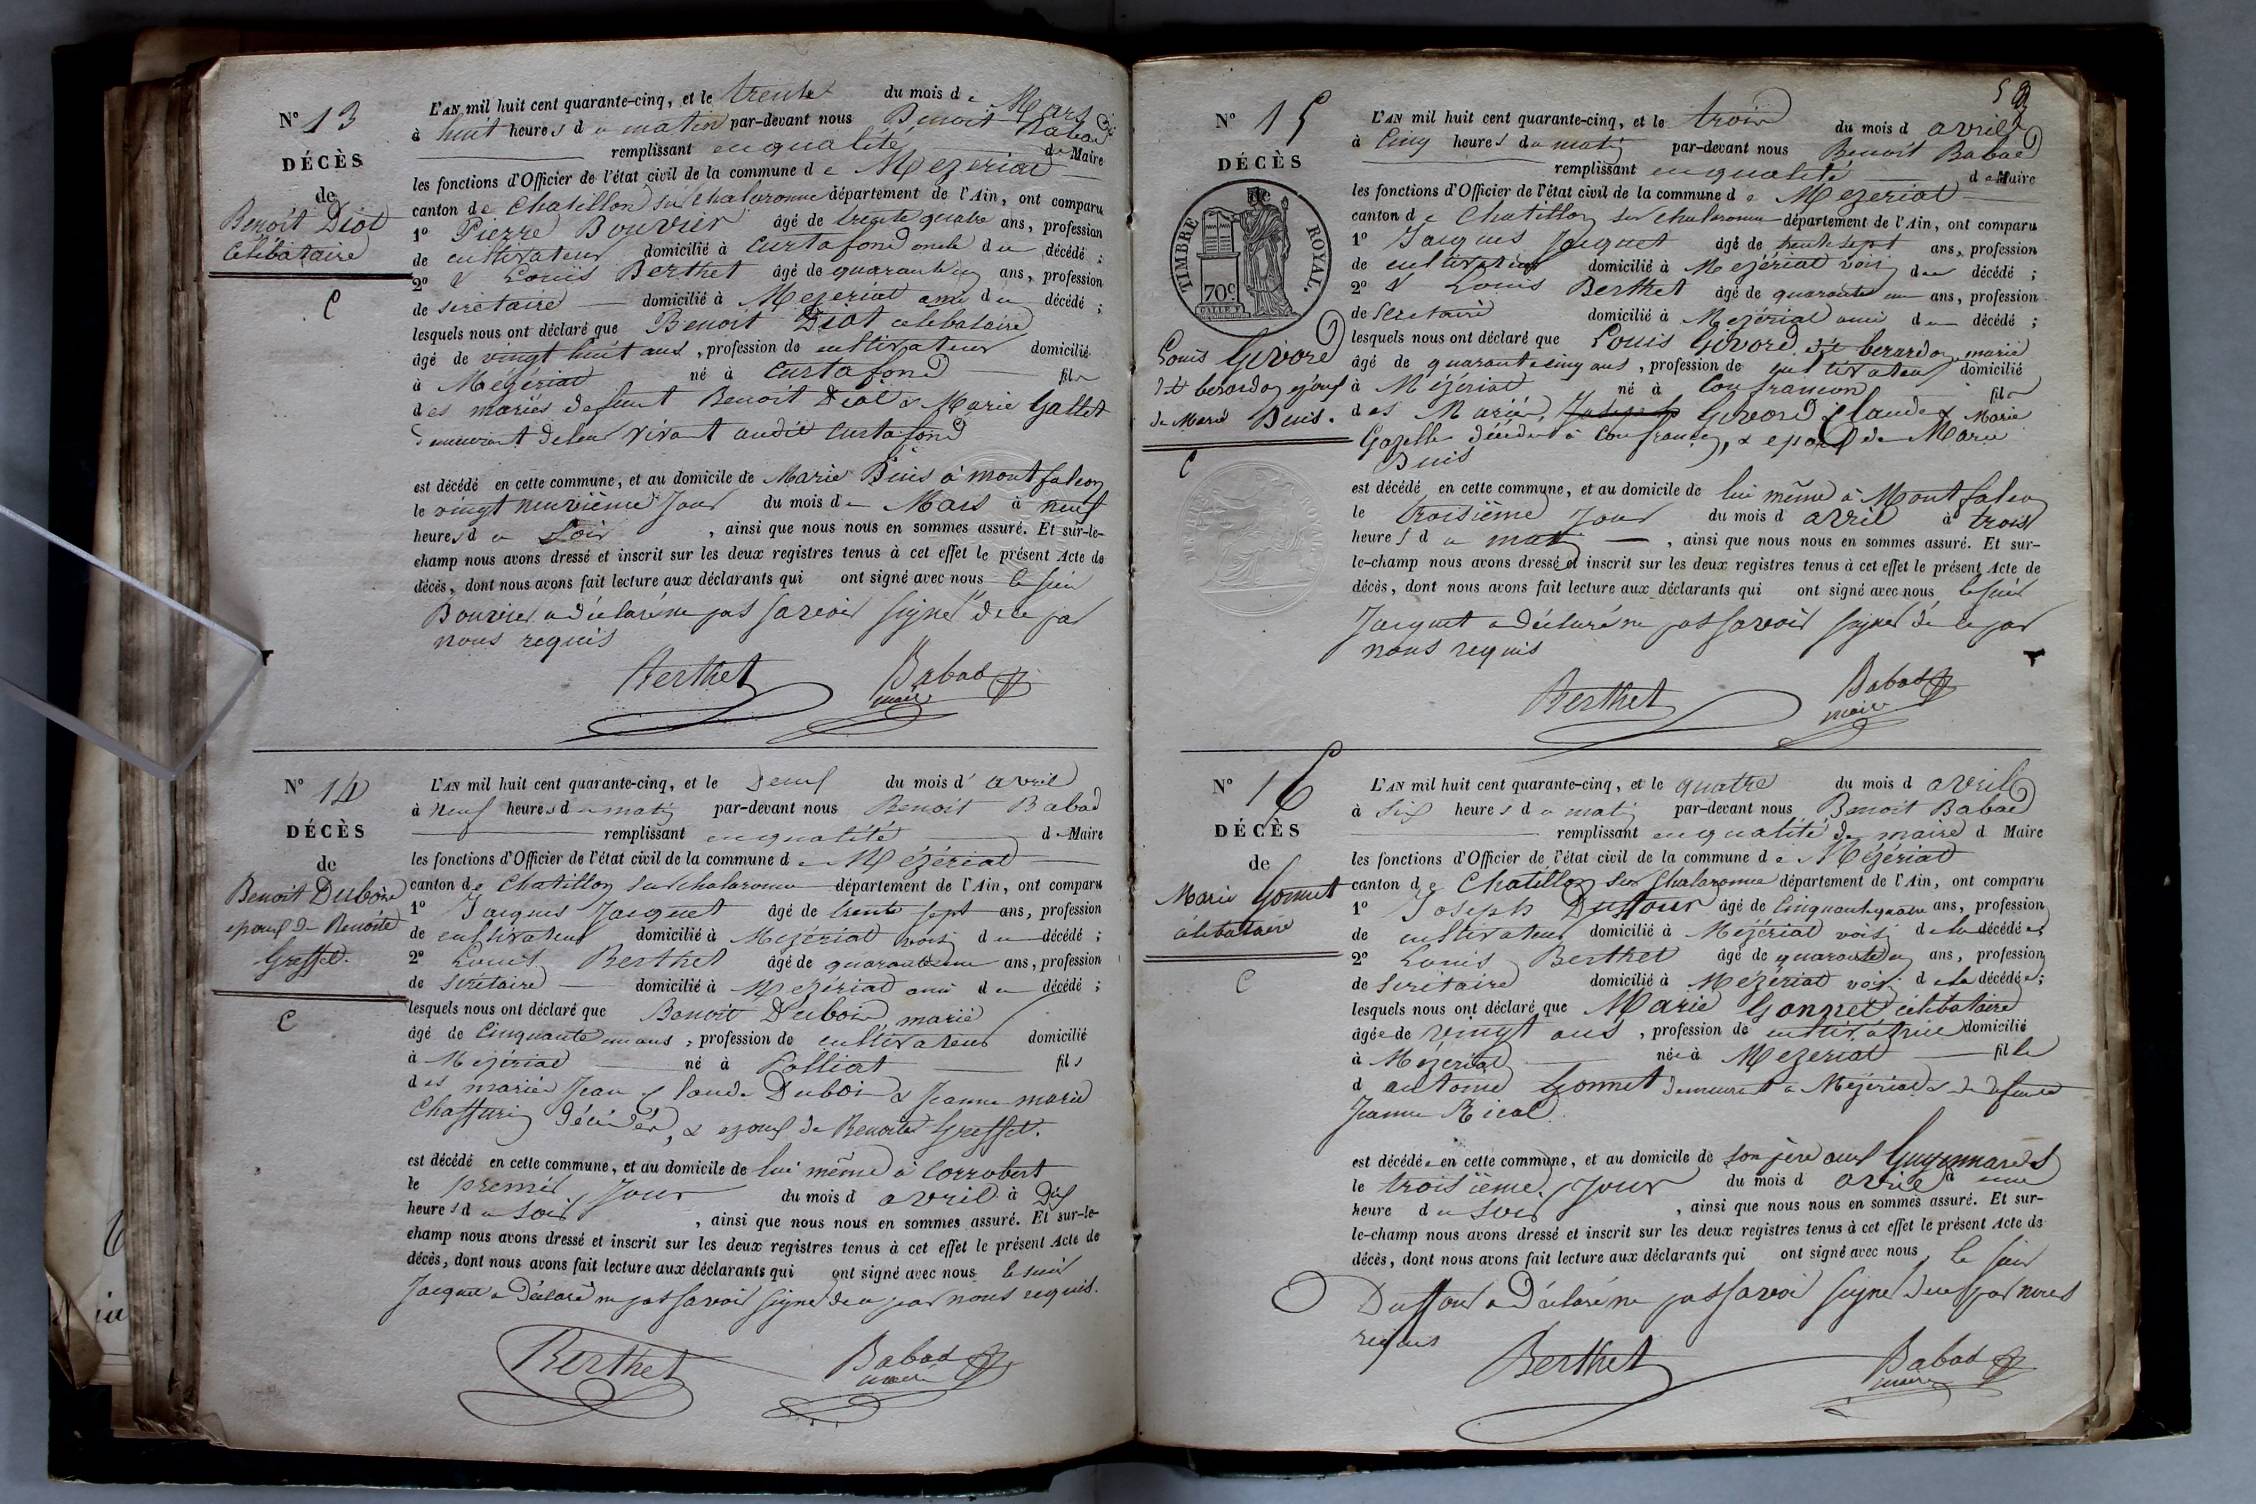 N° 13
DÉCÈS
de
Benoit Diot
Célibataire
C
L'AN mil huit cent quarante-cinq, et le trente du mois de Mars
à huit heures du matin par-devant nous Benoit Babad
remplissant en qualité de Maire
les fonctions d'Officier de l'état civil de la commune de Mezeriat
canton de Chatillon sur Chalaronne département de l'Ain, ont comparu
1° Pierre Bouvier âgé de trente quatre ans, profession
de cultivateur domicilié à Curtafond oncle du décédé ;
2° & Louis Berthet âgé de quarante un ans, profession
de sécretaire domicilié à Mezeriat ami du décédé ;
lesquels nous ont déclaré que Benoit Diot célibataire
âgé de vingt huit ans, profession de cultivateur domicilié
à Mézériat né à Curtafond fils
des mariés defunt Benoit Diot & Marie Gallet
demeurant de leur vivant audit Curtafond
est décédé en cette commune, et au domicile de Marie Buis à Montfalcon
le vingt neuvième jour du mois de Mars à neuf
heures du soir, ainsi que nous nous en sommes assuré. Et sur-le-
champ nous avons dressé et inscrit sur les deux registres tenus à cet effet le présent Acte de
décès, dont nous avons fait lecture aux déclarants qui ont signé avec nous le sieur
Bouvier a déclaré ne pas savoir signer de ce par
nous requis
Berthet Babad
maire
N° 14
DÉCÈS
de
Benoit Dubois
epoux de Benoite
Greffet.
C
L'AN mil huit cent quarante-cinq, et le Deux du mois d'avril
à neuf heures du matin par-devant nous Benoit Babad
remplissant en qualité de Maire
les fonctions d'Officier de l'état civil de la commune de Mézériat
canton de Chatillon sur Chalaronne département de l'Ain, ont comparu
1° Jacques Jacquet âgé de trente sept ans, profession
de cultivateur domicilié à Mezériat voisin du décédé ;
2° Louis Berthet âgé de quarante un ans, profession
de sécretaire domicilié à Mezériat ami du décédé ;
lesquels nous ont déclaré que Benoit Dubois marié
âgé de Cinquante un ans, profession de cultivateur domicilié
à Mezériat né à Polliat fils
des mariés Jean Claude Dubois & Jeanne marie
décédés, & epoux de Benoite Greffet.
est décédé en cette commune, et au domicile de lui même à Corrobert
le premier jour du mois d avril à Dix
heures du soir, ainsi que nous nous en sommes assuré. Et sur-le-
champ nous avons dressé et inscrit sur les deux registres tenus à cet effet le présent Acte de
décès, dont nous avons fait lecture aux déclarants qui ont signé avec nous le sieur
Jacquet a Déclaré ne pas savoir signer de ce par nous requis.
Berthet Babad
maire
N° 15
DÉCÈS
de
TIMBRE ROYAL.
70c
Louis Givord
dit berardon epoux
de Marie Buis.
C
L'AN mil huit cent quarante-cinq, et le trois du mois d avril
à Cinq heures du matin par-devant nous Benoit Babad
remplissant en qualité de Maire
les fonctions d'Officier de l'état civil de la commune de Mezeriat
canton de Chatillon sur Chalaronne département de l'Ain, ont comparu
1° Jacques Jacquet âgé de trente sept ans, profession
de cultivateur domicilié à Mezériat voisin du décédé ;
2° & Louis Berthet âgé de quarante un ans, profession
de Sécretaire domicilié à Mezériat ami du décédé ;
lesquels nous ont déclaré que Louis Givord dit berardon marié
âgé de quarante cinq ans, profession de cultivateur domicilié
à Mézériat né à Confrancon fils
des Mariés Givord Claude & Marie
Gazelle décédés à Confrançon, & epoux de Marie
Buis
est décédé en cette commune, et au domicile de lui même à Montfalcon
le troisième jour du mois d avril à trois
heures du matin, ainsi que nous nous en sommes assuré. Et sur-
le-champ nous avons dressé et inscrit sur les deux registres tenus à cet effet le présent Acte de
décès, dont nous avons fait lecture aux déclarants qui ont signé avec nous le sieur
Jacquet a Déclaré ne pas savoir signer de ce par
nous requis
Berthet Babad
maire
N° 16
DÉCÈS
de
Marie Gonnet
célibataire
C
L'AN mil huit cent quarante-cinq, et le quatre du mois d avril
à six heures du matin par-devant nous Benoit Babad
remplissant en qualité de maire d Maire
les fonctions d'Officier de l'état civil de la commune de Mézériat
canton de Chatillon sur Chalaronne département de l'Ain, ont comparu
1° Joseph Duffour âgé de Cinquante quatre ans, profession
de cultivateur domicilié à Mézériat voisin de la décédée
2° Louis Berthet âgé de quarante un ans, profession
de sécretaire domicilié à Mézériat voisin de la décédée ;
lesquels nous ont déclaré que Marie Gonnet célibataire
âgée de vingt ans, profession de cultivatrice domicilié
à Mézériat née à Mezeriat fille
d antoine Gonnet demeurant à Mézériat & de defunte
Jeanne
est décédée en cette commune, et au domicile de son père aux Guyennards
le troisième jour du mois d avril à une
heure du soir, ainsi que nous nous en sommes assuré. Et sur-
le-champ nous avons dressé et inscrit sur les deux registres tenus à cet effet le présent Acte de
décès, dont nous avons fait lecture aux déclarants qui ont signé avec nous, le sieur
Duffour a Déclaré ne pas savoir signer de ce par nous
requis
Berthet Babad
maire